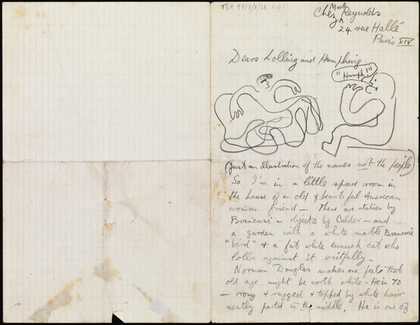 Chez Mary Reynolds
24 rue Hallé
Paris XIV
Dears Lolling and Humphing
"Humph!"
(Just an illustration of the names not the people)
So I'm in a little spare room in
the house of an old & beautiful American
woman friend – There are statues by
Brancusi – objects by Calder – and
a garden with a white marble Brancusi
"bird" & a fat white eunuch cat who
lolls against it
Norman Douglas makes me feel that
old age might be worth while – He is 70
– rosy & rugged & topped by white hair
neatly parted in the middle. He is one of